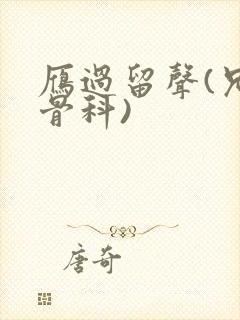 雁過留聲(兄
骨科)
唐奇